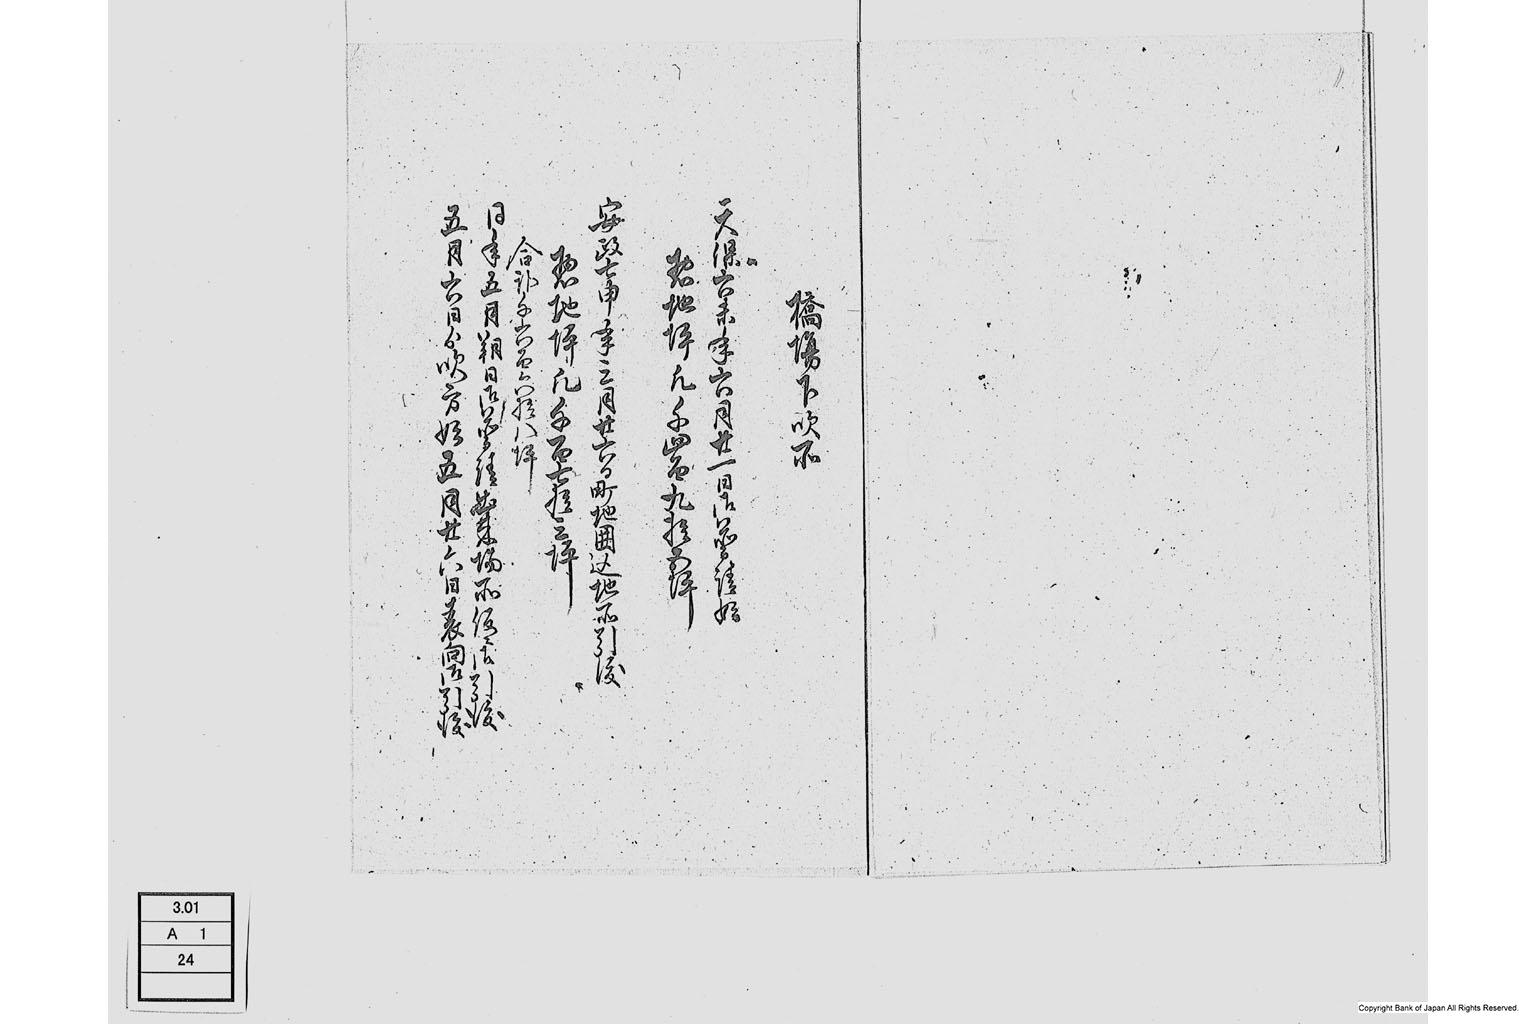 橋場下吹所
天保六未年六月廿一日御普請始
惣地坪凡千四百九拾五坪
安政七申年三月廿六日町地囲込地所引渡
惣地坪凡千百七拾三坪
合弐千六百六拾八坪
同年五月朔日御普請出来場所仮ニ御引渡
五月六日ゟ吹方始五月廿六日表向御引渡
3.01
A 1
24
Copyright Bank of Japan All Rights Reserved.